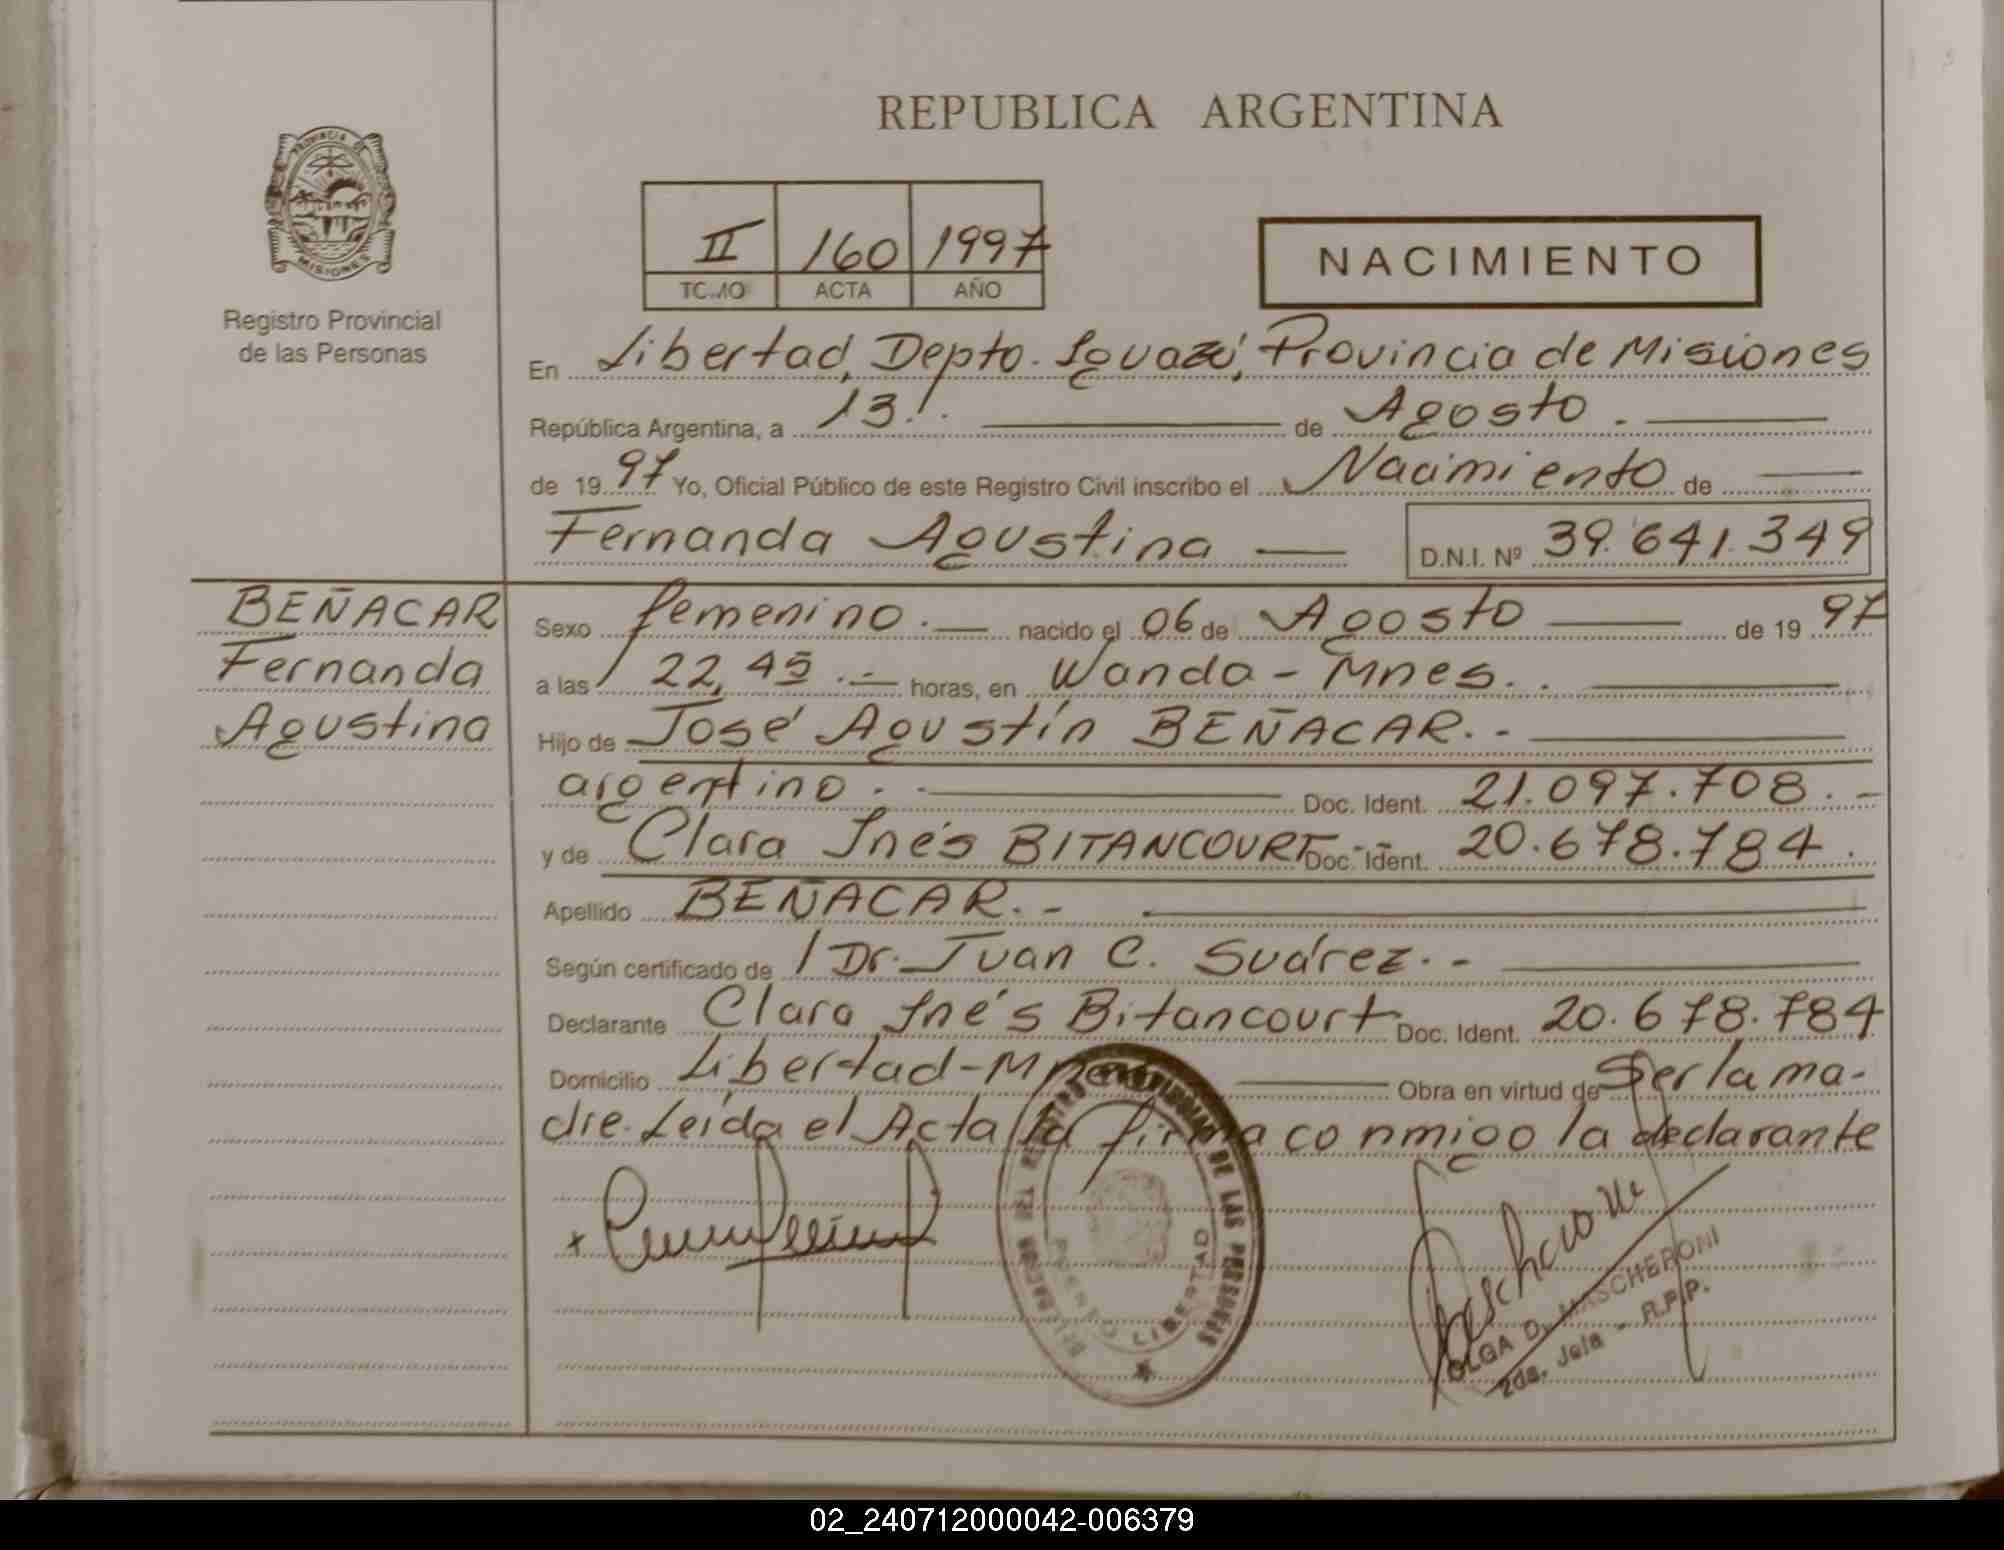 REPUBLICA ARGENTINA
PROVINCIA DE
MISIONES
Registro Provincial
de las Personas
II 160 1997
TOMO ACTA AÑO
NACIMIENTO
En Libertad, Depto. Iguazú, Provincia de Misiones
República Argentina, a 13.- de Agosto.
de 1997 Yo, Oficial Público de este Registro Civil inscribo el Nacimiento de
Fernanda Agustina D.N.I. Nº 39.641.349
BEÑACAR
Fernanda
Agustina
Sexo femenino.- nacido el 06 de Agosto de 1997
a las 22,45.- horas, en Wanda - Mnes..
Hijo de José Agustín BEÑACAR.-
argentino.- Doc. Ident. 21.097.708.-
y de Clara Inés BITANCOURT.- Doc. Ident. 20.678.784.
Apellido BEÑACAR.-
Según certificado de Dr. Juan C. Suárez.-
Declarante Clara Inés Bitancourt Doc. Ident. 20.678.784
Domicilio Libertad-Mnes. Obra en virtud de Ser la ma-
dre. Leída el Acta la firma conmigo la declarante
DE LAS PERSONAS
LIBERTAD
OLGA D. MASCHERONI
2da. Jefa - R.P.P.
02_240712000042-006379